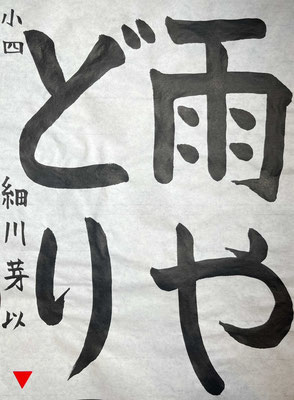 雨や
どり
小四 細川芽以